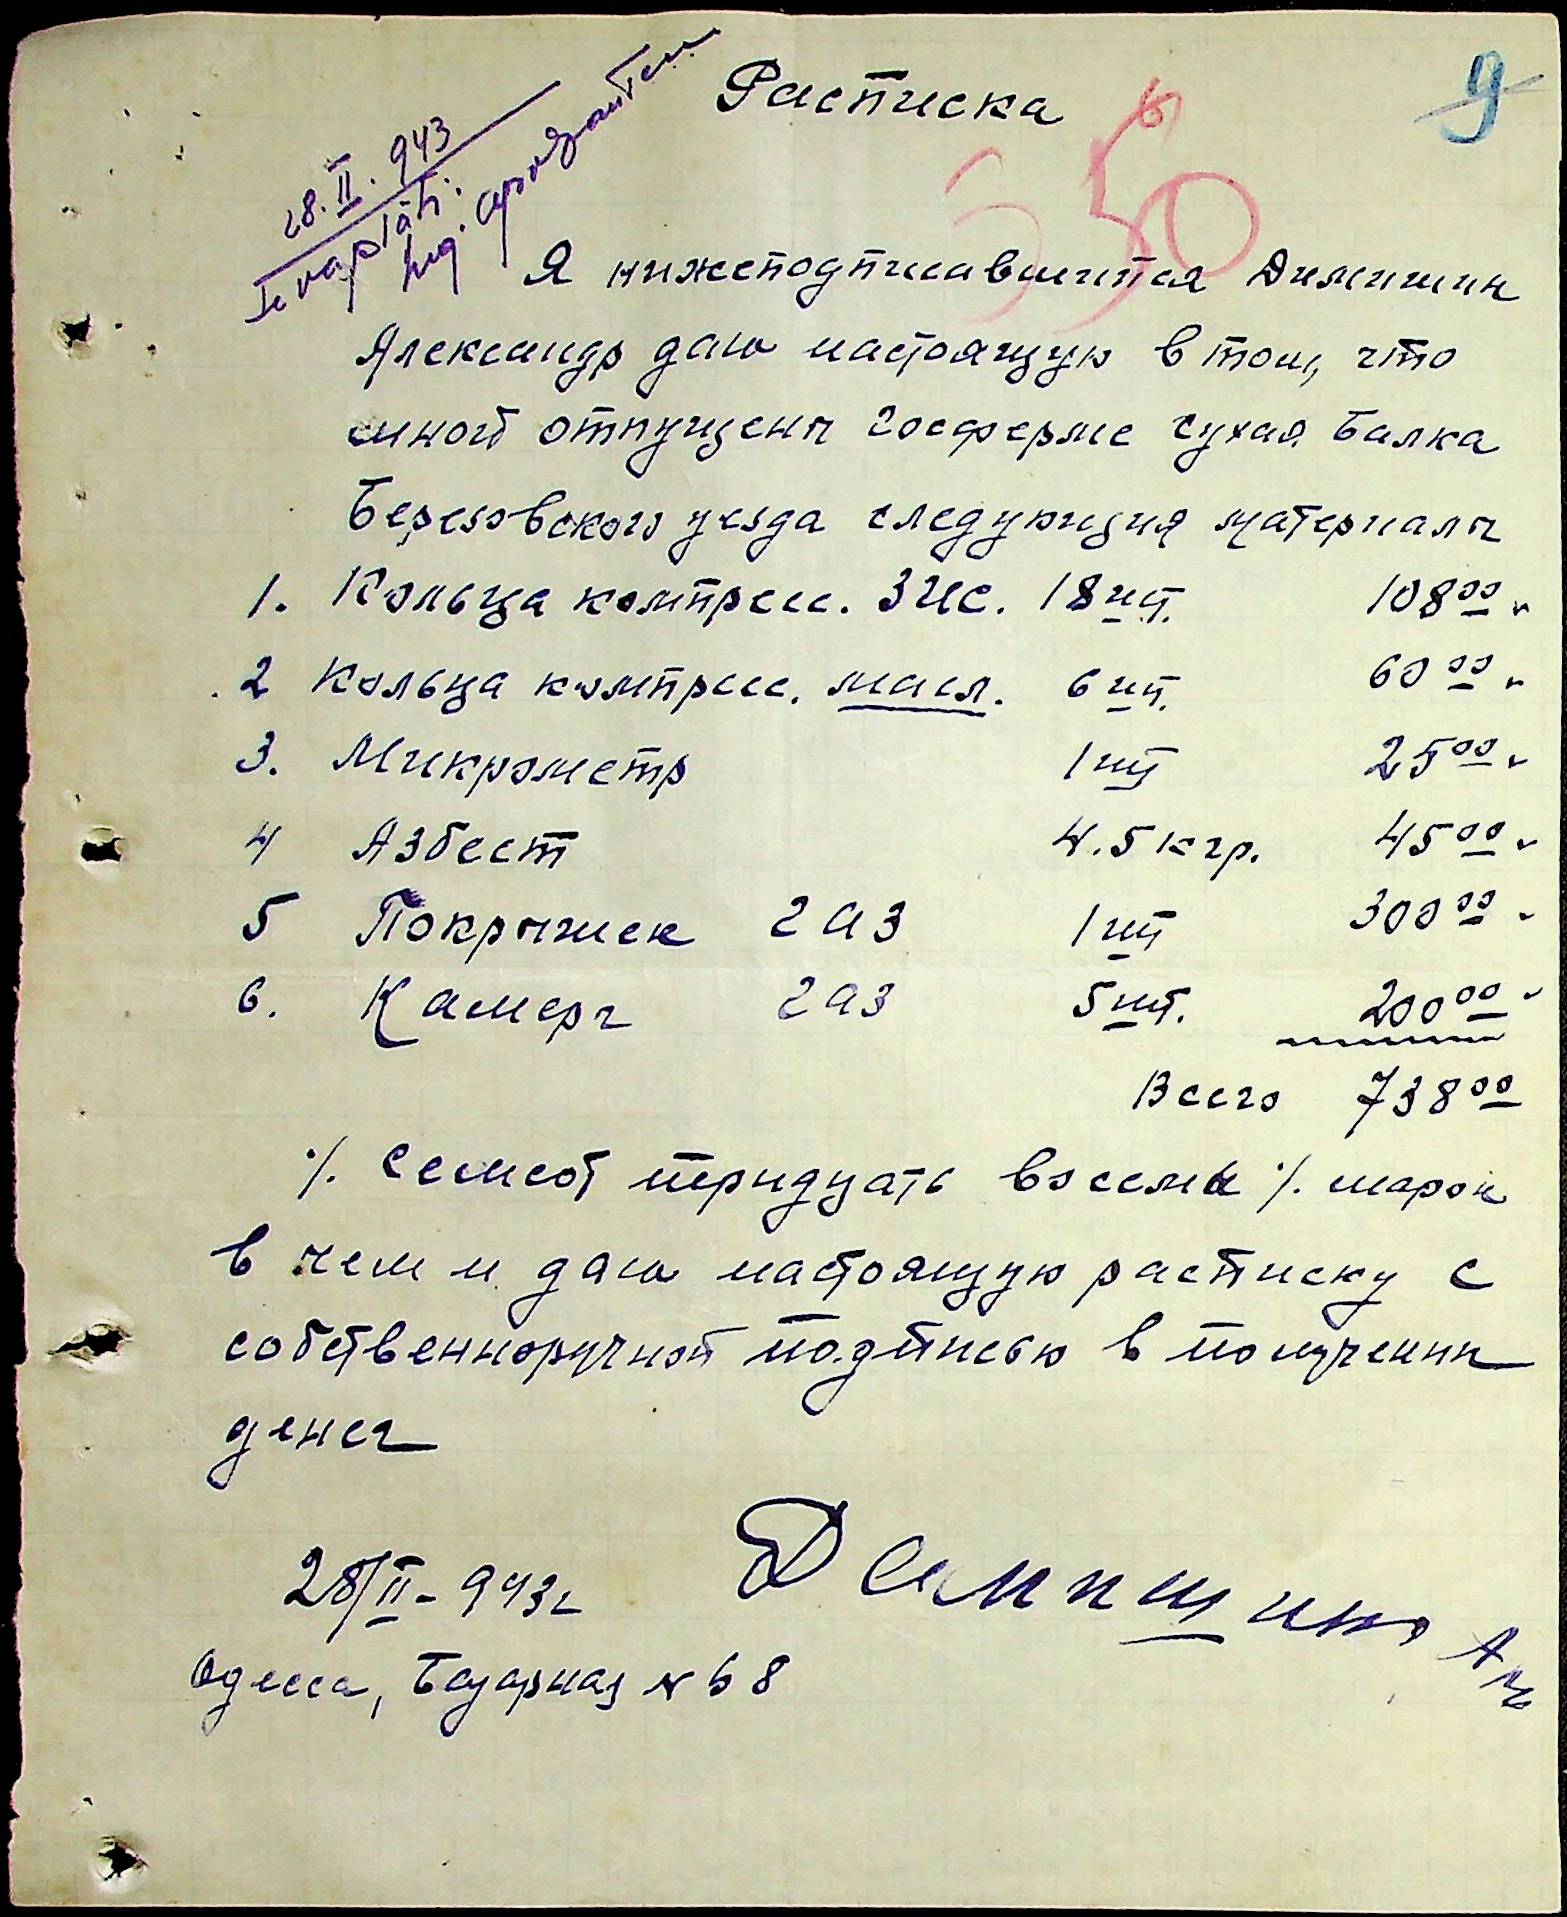 Расписка
9
350
28.II.943
Я нижеподписавшийся Димишин
Александр даю настоящую в том, что
мной отпущены госферме Сухая Балка
Березовского уезда следующия материалы
1. Кольца компресс. ЗИС. 18 шт. 108 00
2 Кольца компресс. масл. 6 шт. 60 00
3. Микрометр 1 шт 25 00
4 Азбест 4.5 кгр. 45 00
5 Покрышек ГАЗ 1 шт 300 00
6. Камеры ГАЗ 5 шт. 200 00
Всего 738 00
٪ Семсот тридцать восемь ٪ марок
в чем и даю настоящую расписку с
собственноручной подписью в получении
денег
28/II-943г
Одесса, Базарная № 68